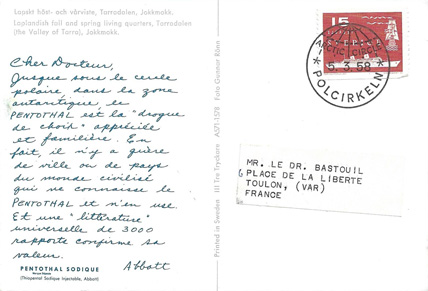 Lapskt höst- och vårviste, Tarradalen, Jokkmokk.
Laplandish fall and spring living quarters, Tarradalen
(the Valley of Tarra), Jokkmokk.
Cher Docteur,
Jusque sous le cercle
polaire dans la zone
antarctique, le
PENTOTHAL est la "drogue
de choix" appréciée
et familière. En
fait, il n'y a guère
de ville ou de pays
du monde civilisé
qui ne connaisse le
PENTOTHAL et n'en use.
Et une "littérature"
universelle de 3000
rapports confirme sa
valeur.
Abbott
PENTOTHAL SODIQUE
(Thiopental Sodique injectable, Abbott)
Printed in Sweden III Tre Tryckare AST-1578 Foto Gunnar Rönn
15
ARCTIC CIRCLE
5.3.58
POLCIRKELN
MR. LE DR. BASTOUIL
6 PLACE DE LA LIBERTE
TOULON, (VAR)
FRANCE